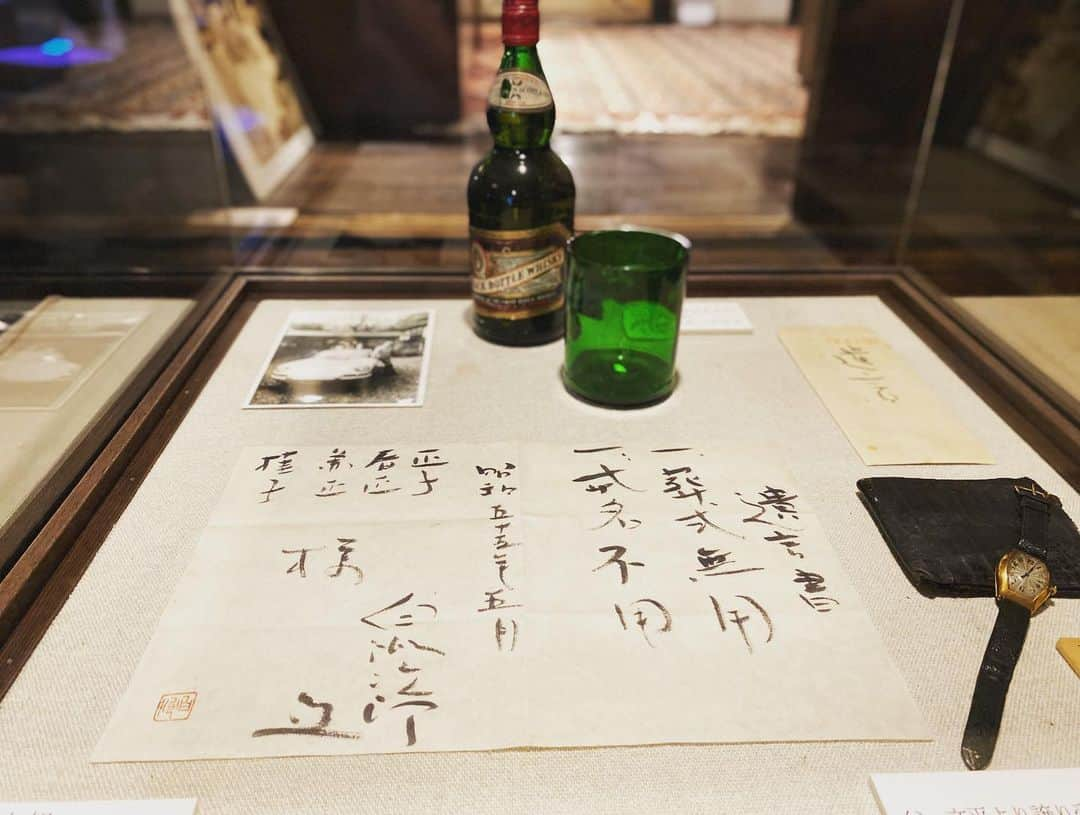 遺言書
一、葬式無用
一、戒名不用
昭和五十五年五月
正子
春正
兼正
桂子
様
白洲次郎
BOTTLE WHISKY
文平より譲り